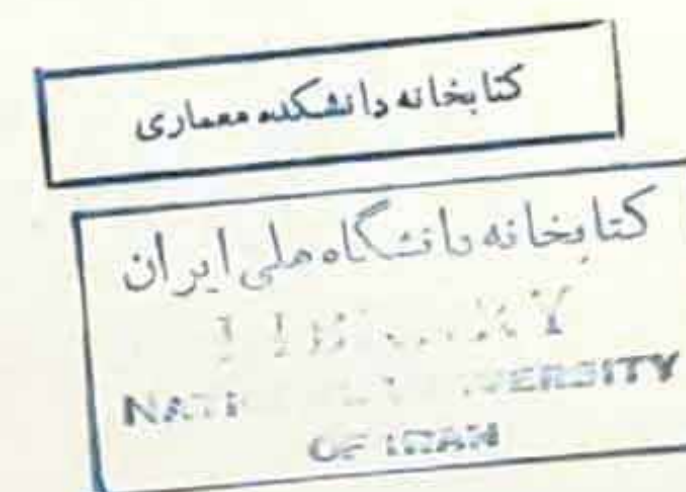 کتابخانه دانشکده معماری
کتابخانه دانشگاه ملی ایران
UNIVERSITY
OF IRAN